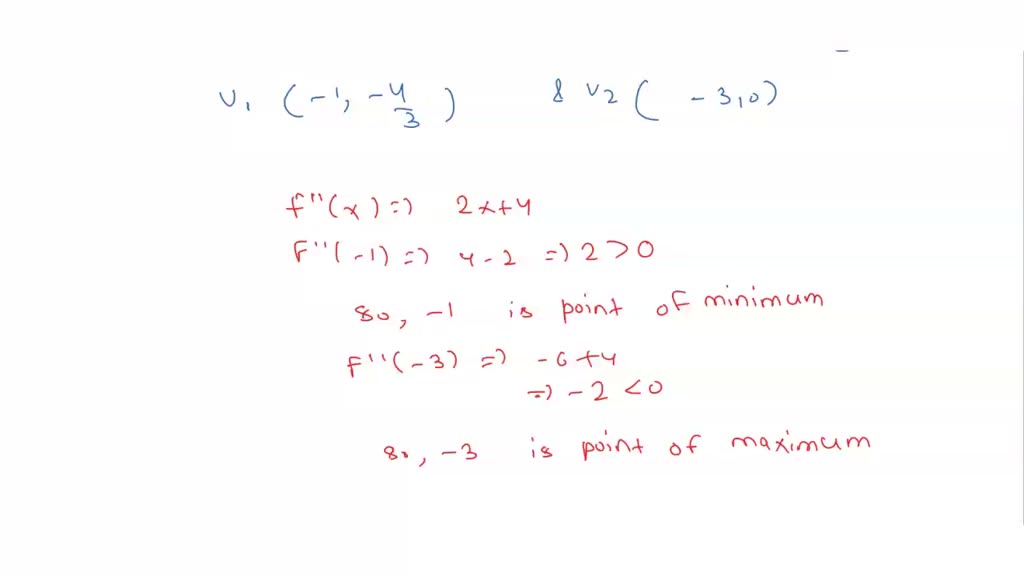 V₁ (-1, -4/3) & V2 ( -3,0)
f''(x) => 2x+4
F''(-1) => 4-2 => 2 > 0
so, -1 is point of minimum
F''(-3) => -6+4
=> -2 < 0
so, -3 is point of maximum